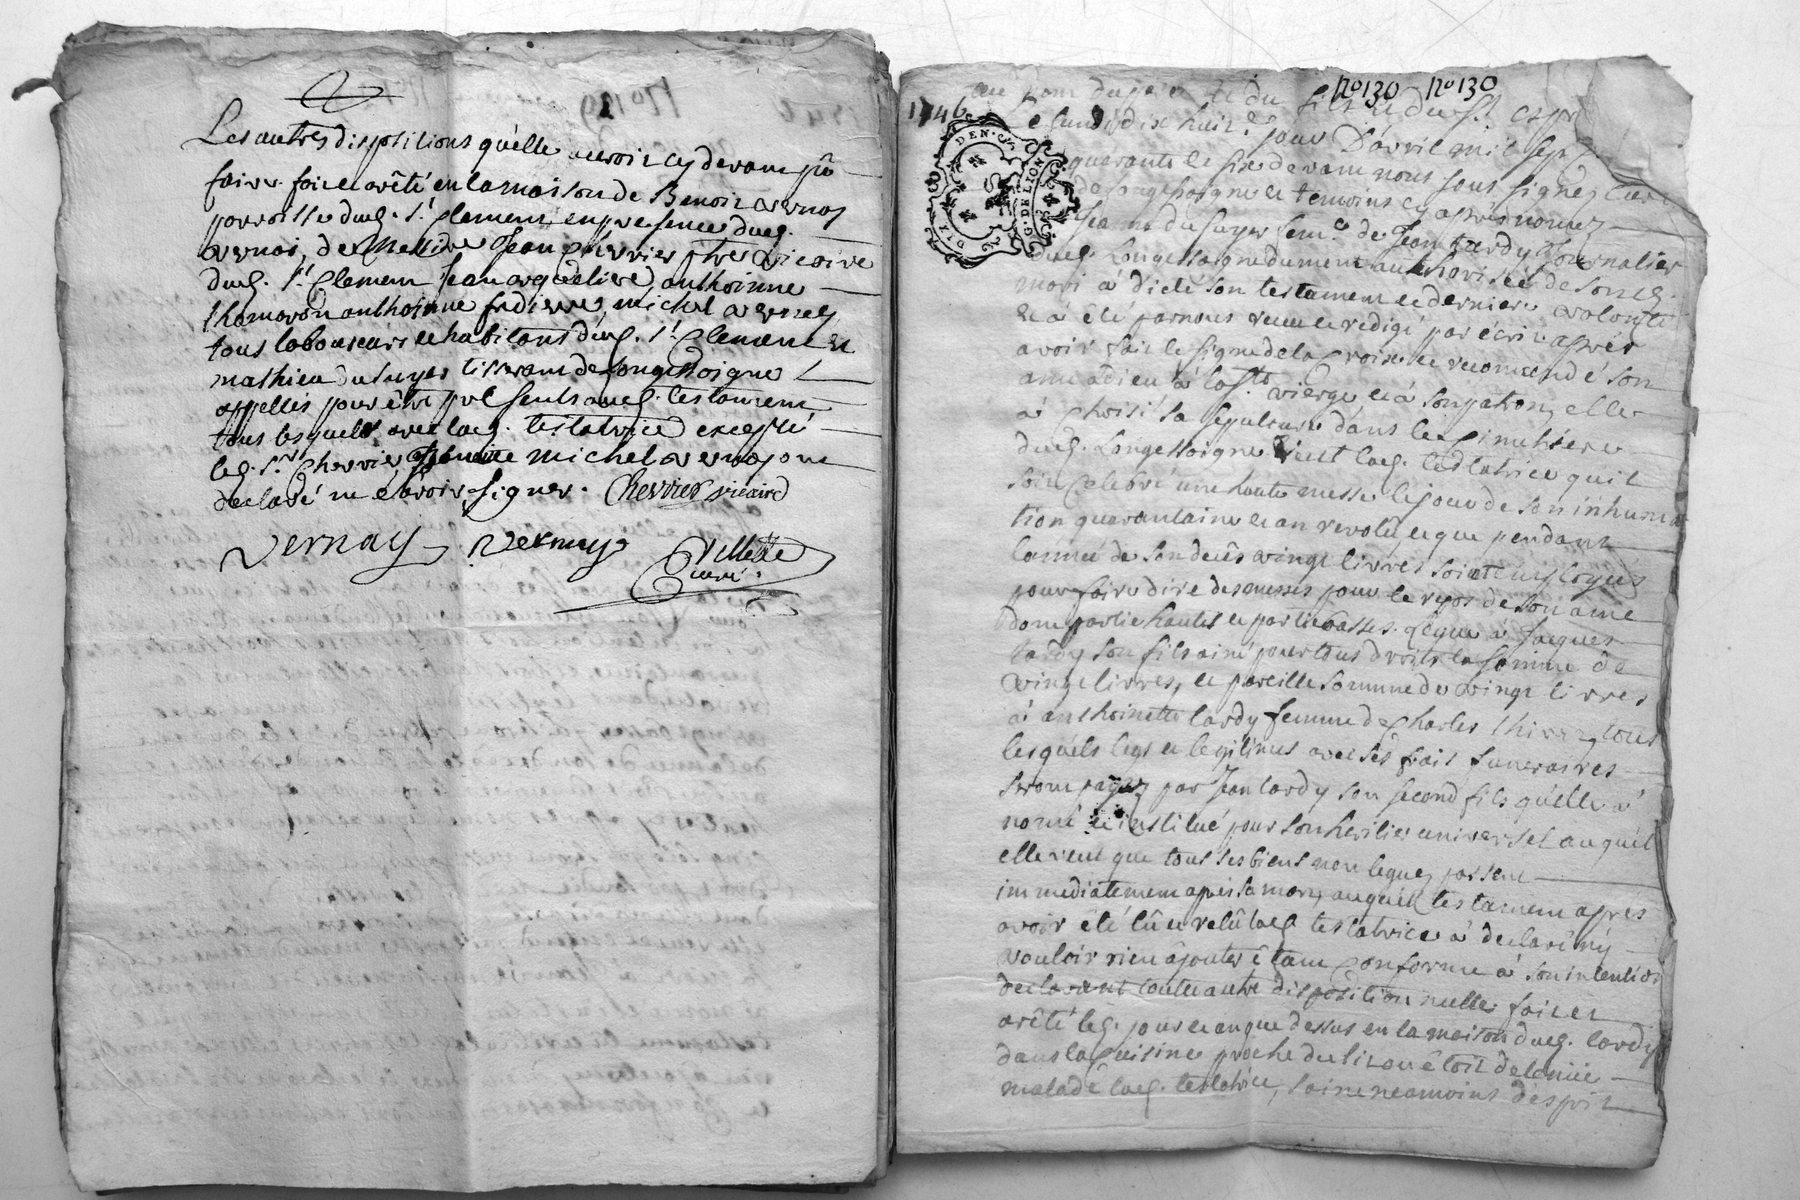 Les autres dispositions qu'elle auroit cy devant pû
faire. fait et arêté en la maison de Benoit vernay
parroisse dud. St. Clement, en presence dud.
vernai, de Messire Jean Cherrier ptre vicaire
dud. St. Clement Jean arquelier, anthoinne
thomoron anthoinne fedierre, michel vernay
tous laboureurs et habitans dud. St. Clement et
mathieu dusuyer tisserant de Longessoigne
appellés pour être presents aud. testament
tous lesquels avec lad. testatrice excepté
led. Sr. Cherrier, et michel vernay ont
declaré ne sçavoir signer. Cherrier vicaire
Vernay Vernay Villette
curé.
no 130 no 130
1746
au nom du pere et du fils et du St. espr
ce lundi dix huit.e jour d'avril mil sept
quarante le six devant nous sous signez curé
de longessoigne et temoins cy après nomez
Jeanne dusuyer fem.e de Jean Lardy Journalier
dud. Longessoigne dument authorisée de son d.
mari à dicté son testament et derniere volonté
et à été par nous receu et redigé par écrit après
avoir fait le signe de la Croix et recomendé son
ame a dieu à la Ste vierge et à son patron, elle
à choisi sa sepulture dans le Cimetiere
dud. Longessoigne veut lad. testatrice qu'il
soit Celebré une haute messe le jour de son inhuma
tion quarantaine et an revolû et que pendant
l'année de son decês vingt livres soient employés
pour faire dire des messes pour le repos de son ame
dont partie hautes et partie basses. Legue à Jacques
Lardy son fils ainé pour tous droits la somme de
vingt livres, et pareille somme de vingt livres
à anthoinette Lardy femme de Charles thivez, tous
lesquels legs et legitimes avec ses frais funeraires
seront payez par Jean Lardy son second fils qu'elle à
nomé et institué pour son heritier universel auquel
elle veut que tous ses biens non leguez passent
immediatement après sa mort, auquel testament après
avoir été lû et relû lad. testatrice à declaré ny
vouloir rien âjouter êtant Conforme à son intention
declarant toutte autre disposition nulle. fait et
arêté led. jour et an que dessus en la maison dud. Lardy
dans la Cuisine proche du lit ou êtoit detenüe
malade lad. testatrice, saine neamoins d'esprit